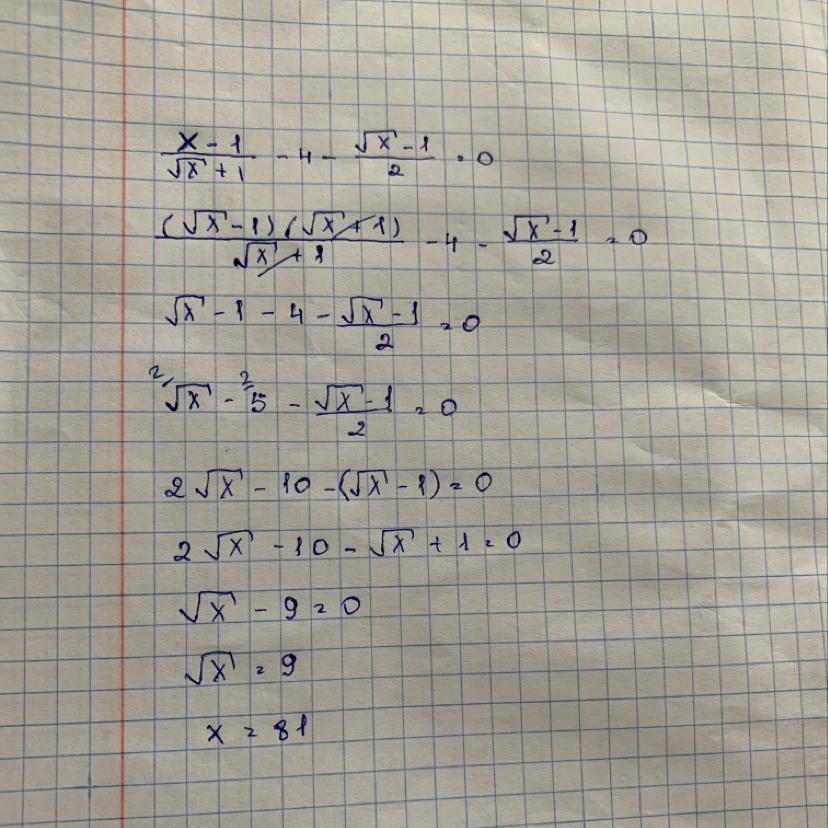 (x - 1)/(√x + 1) - 4 - (√x - 1)/2 = 0
((√x - 1)(√x + 1))/(√x + 1) - 4 - (√x - 1)/2 = 0
√x - 1 - 4 - (√x - 1)/2 = 0
²/√x - ²/5 - (√x - 1)/2 = 0
2√x - 10 - (√x - 1) = 0
2√x - 10 - √x + 1 = 0
√x - 9 = 0
√x = 9
x = 81